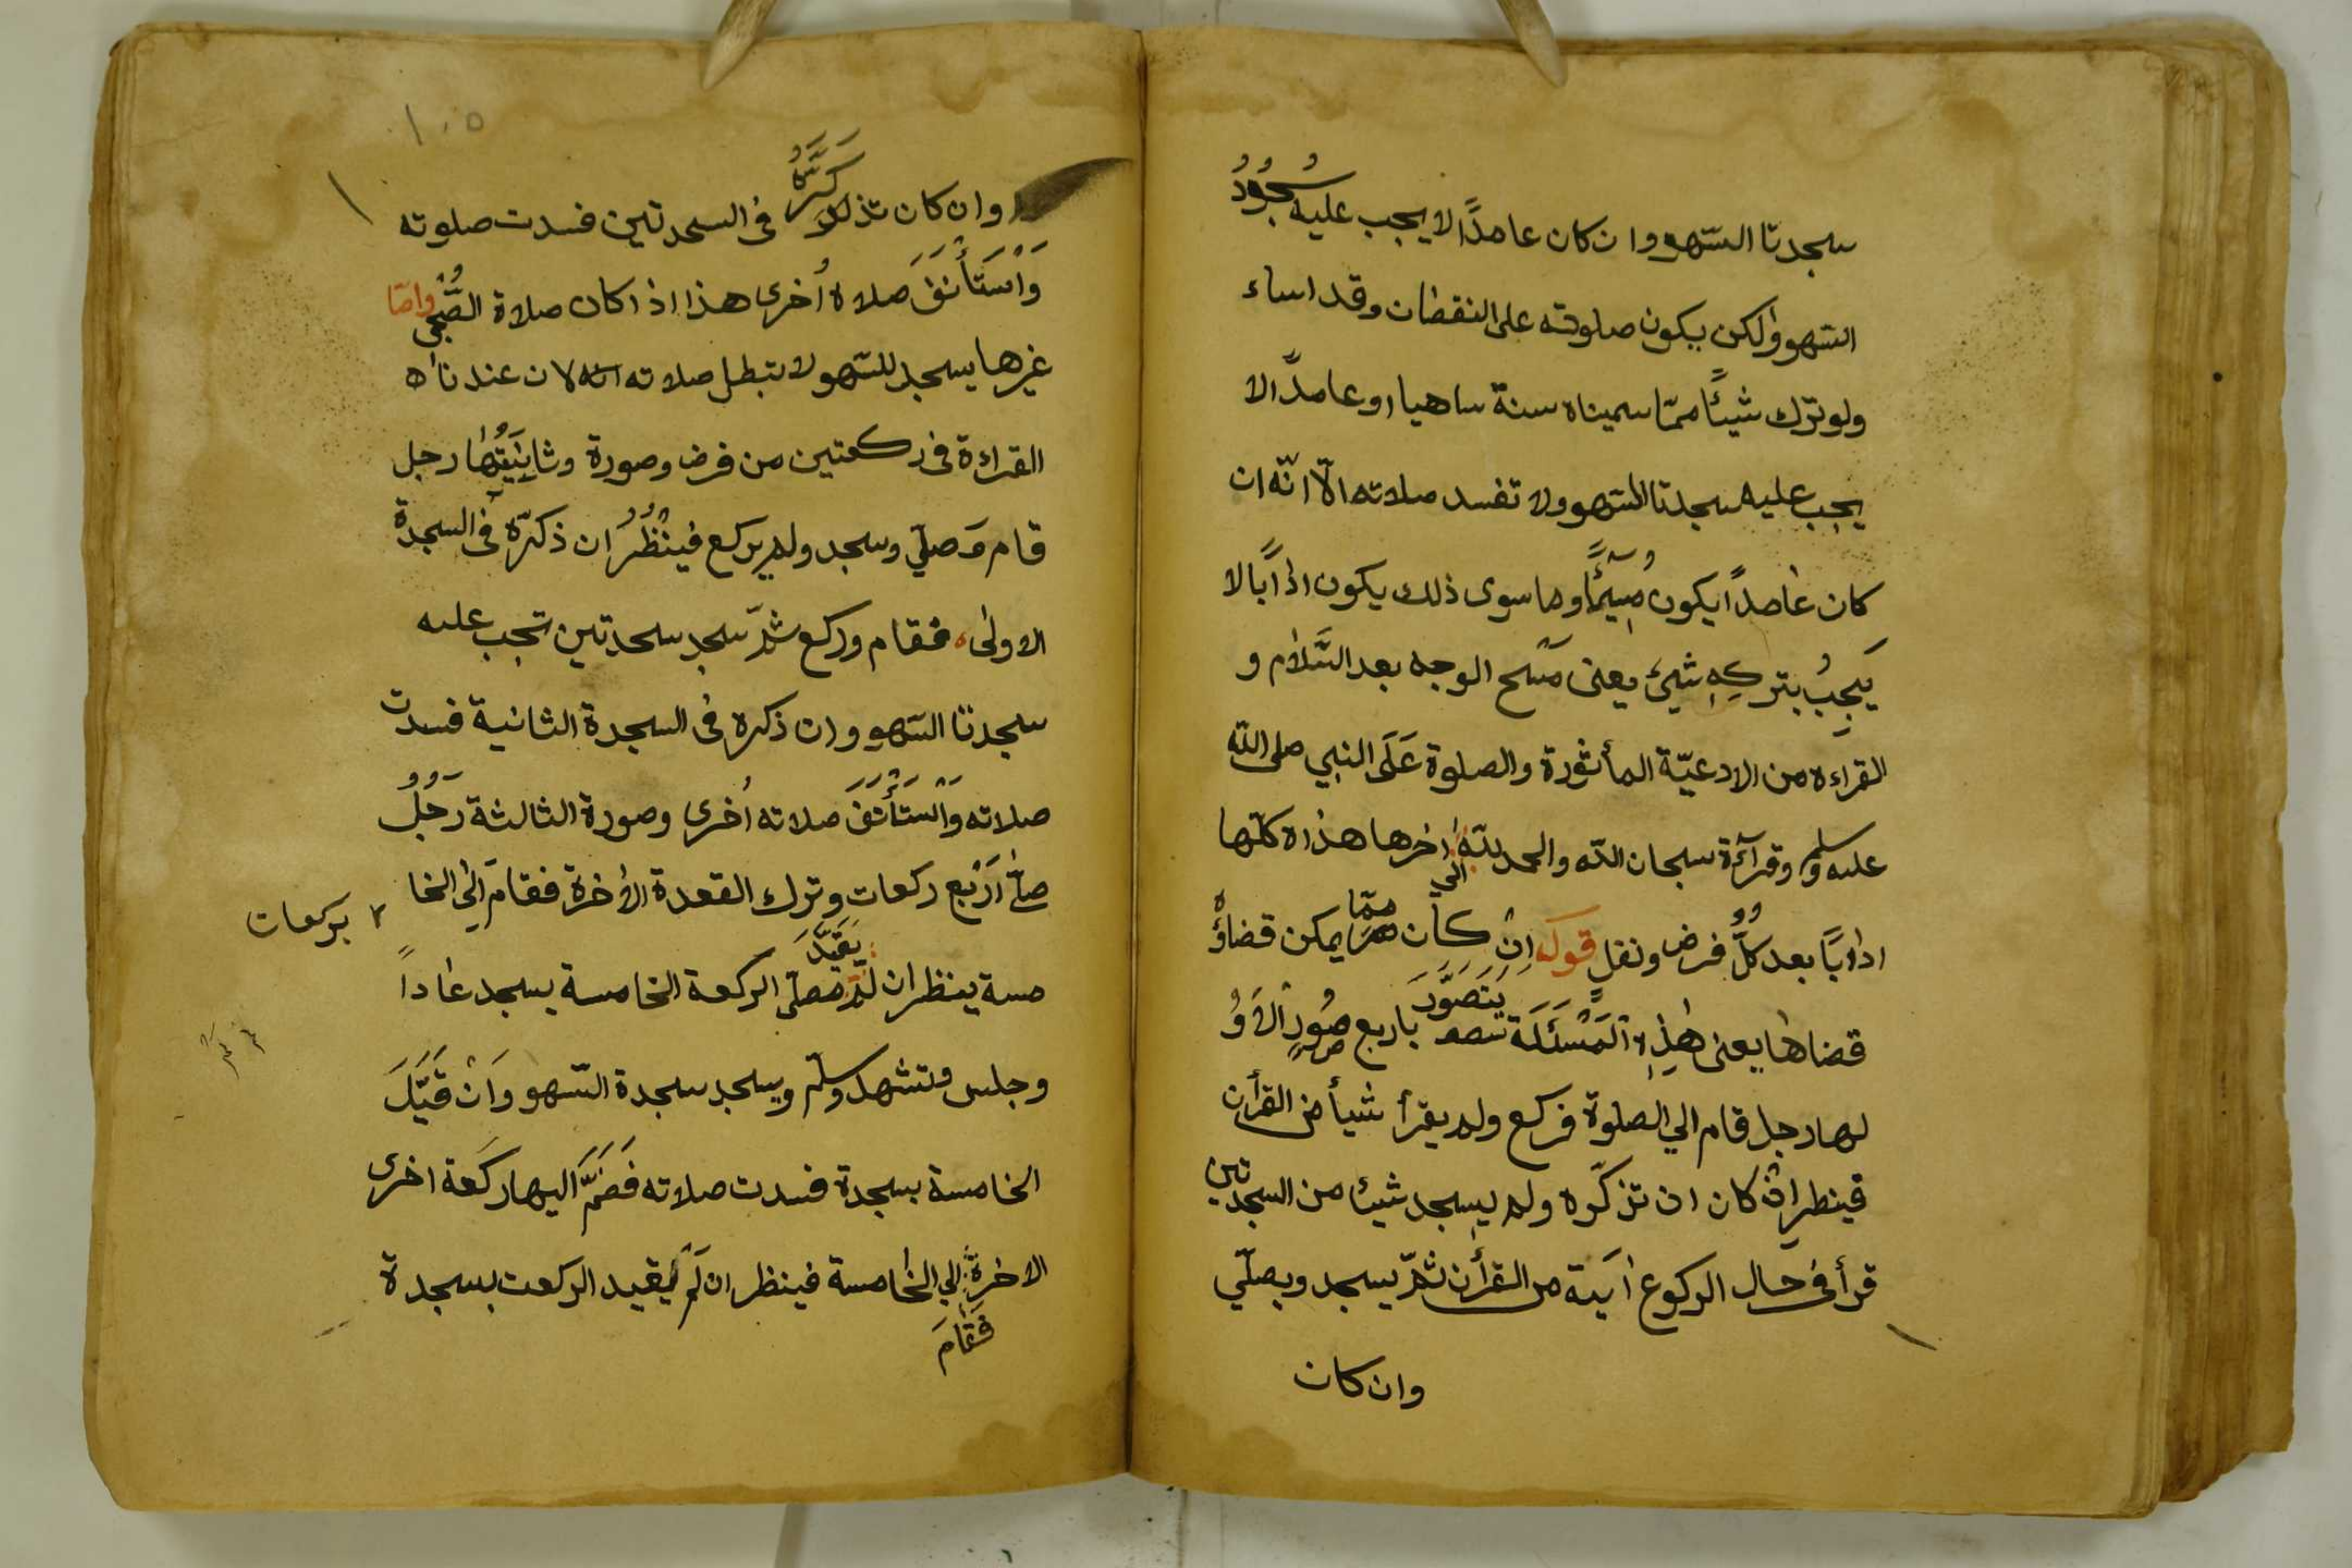 سجدتا السّهو وان كان عامدًا لا يجب عليه سُجُودُ
السّهو ولكن يكون صلوته على النقضان وقد اساء
ولو ترك شيئًا ممّا سميناه سنة ساهيا او عامدًا لا
يجب عليه سجدتا السّهو ولا تفسد صلاته الّا انّه ان
كان عامدًا يكون مُسِيئًا وما سوى ذلك يكون ادابًا لا
يَجِبُ بتركِهِ شيئ يعنى مَسْح الوجه بعد السَّلام و
القراءة من الادعيّة المأثورة والصلوة عَلَى النبي صلى الله
عليه وسلم وقرآءة سبحان الله والحمد لله الى اخرها هذه كلّها
ادابًا بعد كلُّ فرض ونفلٍ قوله اِن كان ممّا يمكن قضاؤُه
قضاها يعنى هٰذِهِ الْمَسْئَلَة يَتَصَوَّرَ باربع صُورٍ الاوُ
لها رجل قام الي الصلوة فركع ولم يقرأ شيأ من القرأن
فينظر ان كان ان تذكّره ولم يسجد شيئا من السجدتين
قرأ في حال الركوع اٰيَة من القرأن ثمّ يسجد ويصلّي
وان كان
١٠٥
وان كان تذكَّرَهُ فى السجدتين فسدت صلوته
وَاْسْتَأْنَفَ صلاة اُخرى هذا اذا كان صلاة الصُّبْحِ وامّا
غيرها يسجد للسّهو لا تبطل صلاته لان عندنا
القراءة فى ركعتين من فرض وصورة وثانِيَتُهَا رجل
قام وَصلّي وسجد ولم يركع فينْظُرُ ان ذكرّه فى السجدة
الاولى فقام وركع ثمّ سجد سجدتين تجب عليه
سجدتا السّهو وان ذكره فى السجدة الثانية فسدت
صلاته وَاْسْتَأْنَفَ صلاته اُخرى وصورة الثالثة رَجُلٌ
صلّٰى اَرْبع ركعات وترك القعدة الاخرة فقامَ الى الخا
بركعات
مسة ينظر ان لم يَقَيَّدَ الركعة الخامسة بسجد عادًا
وجلس وتشهد وسلّم ويسجد سجدة السّهو وَاِنْ قَيَّدَ
الخامسة بسجدة فسدت صلاته فَضَمَّ اليها ركعة اخرى
الاخرة فَقَامَ الي الخامسة فينظر ان لَمْ يقيد الركعت بسجدة